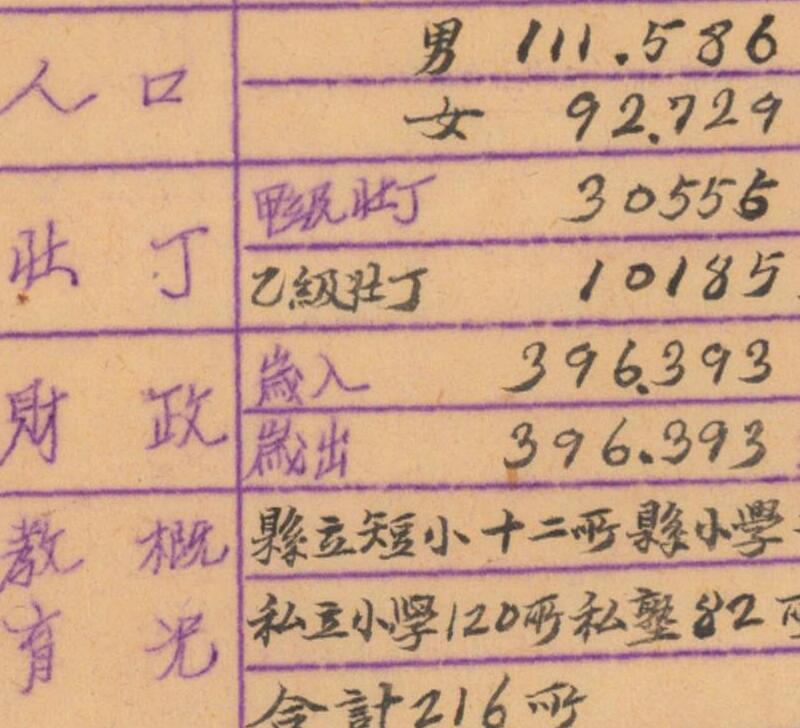 人口 男 111.586
女 92.729
壯丁 甲級壯丁 30555
乙級壯丁 10185
財政 歲入 396.393
歲出 396.393
教育概況 縣立短小十二所縣小學
私立小學120所私塾82所
合計216所